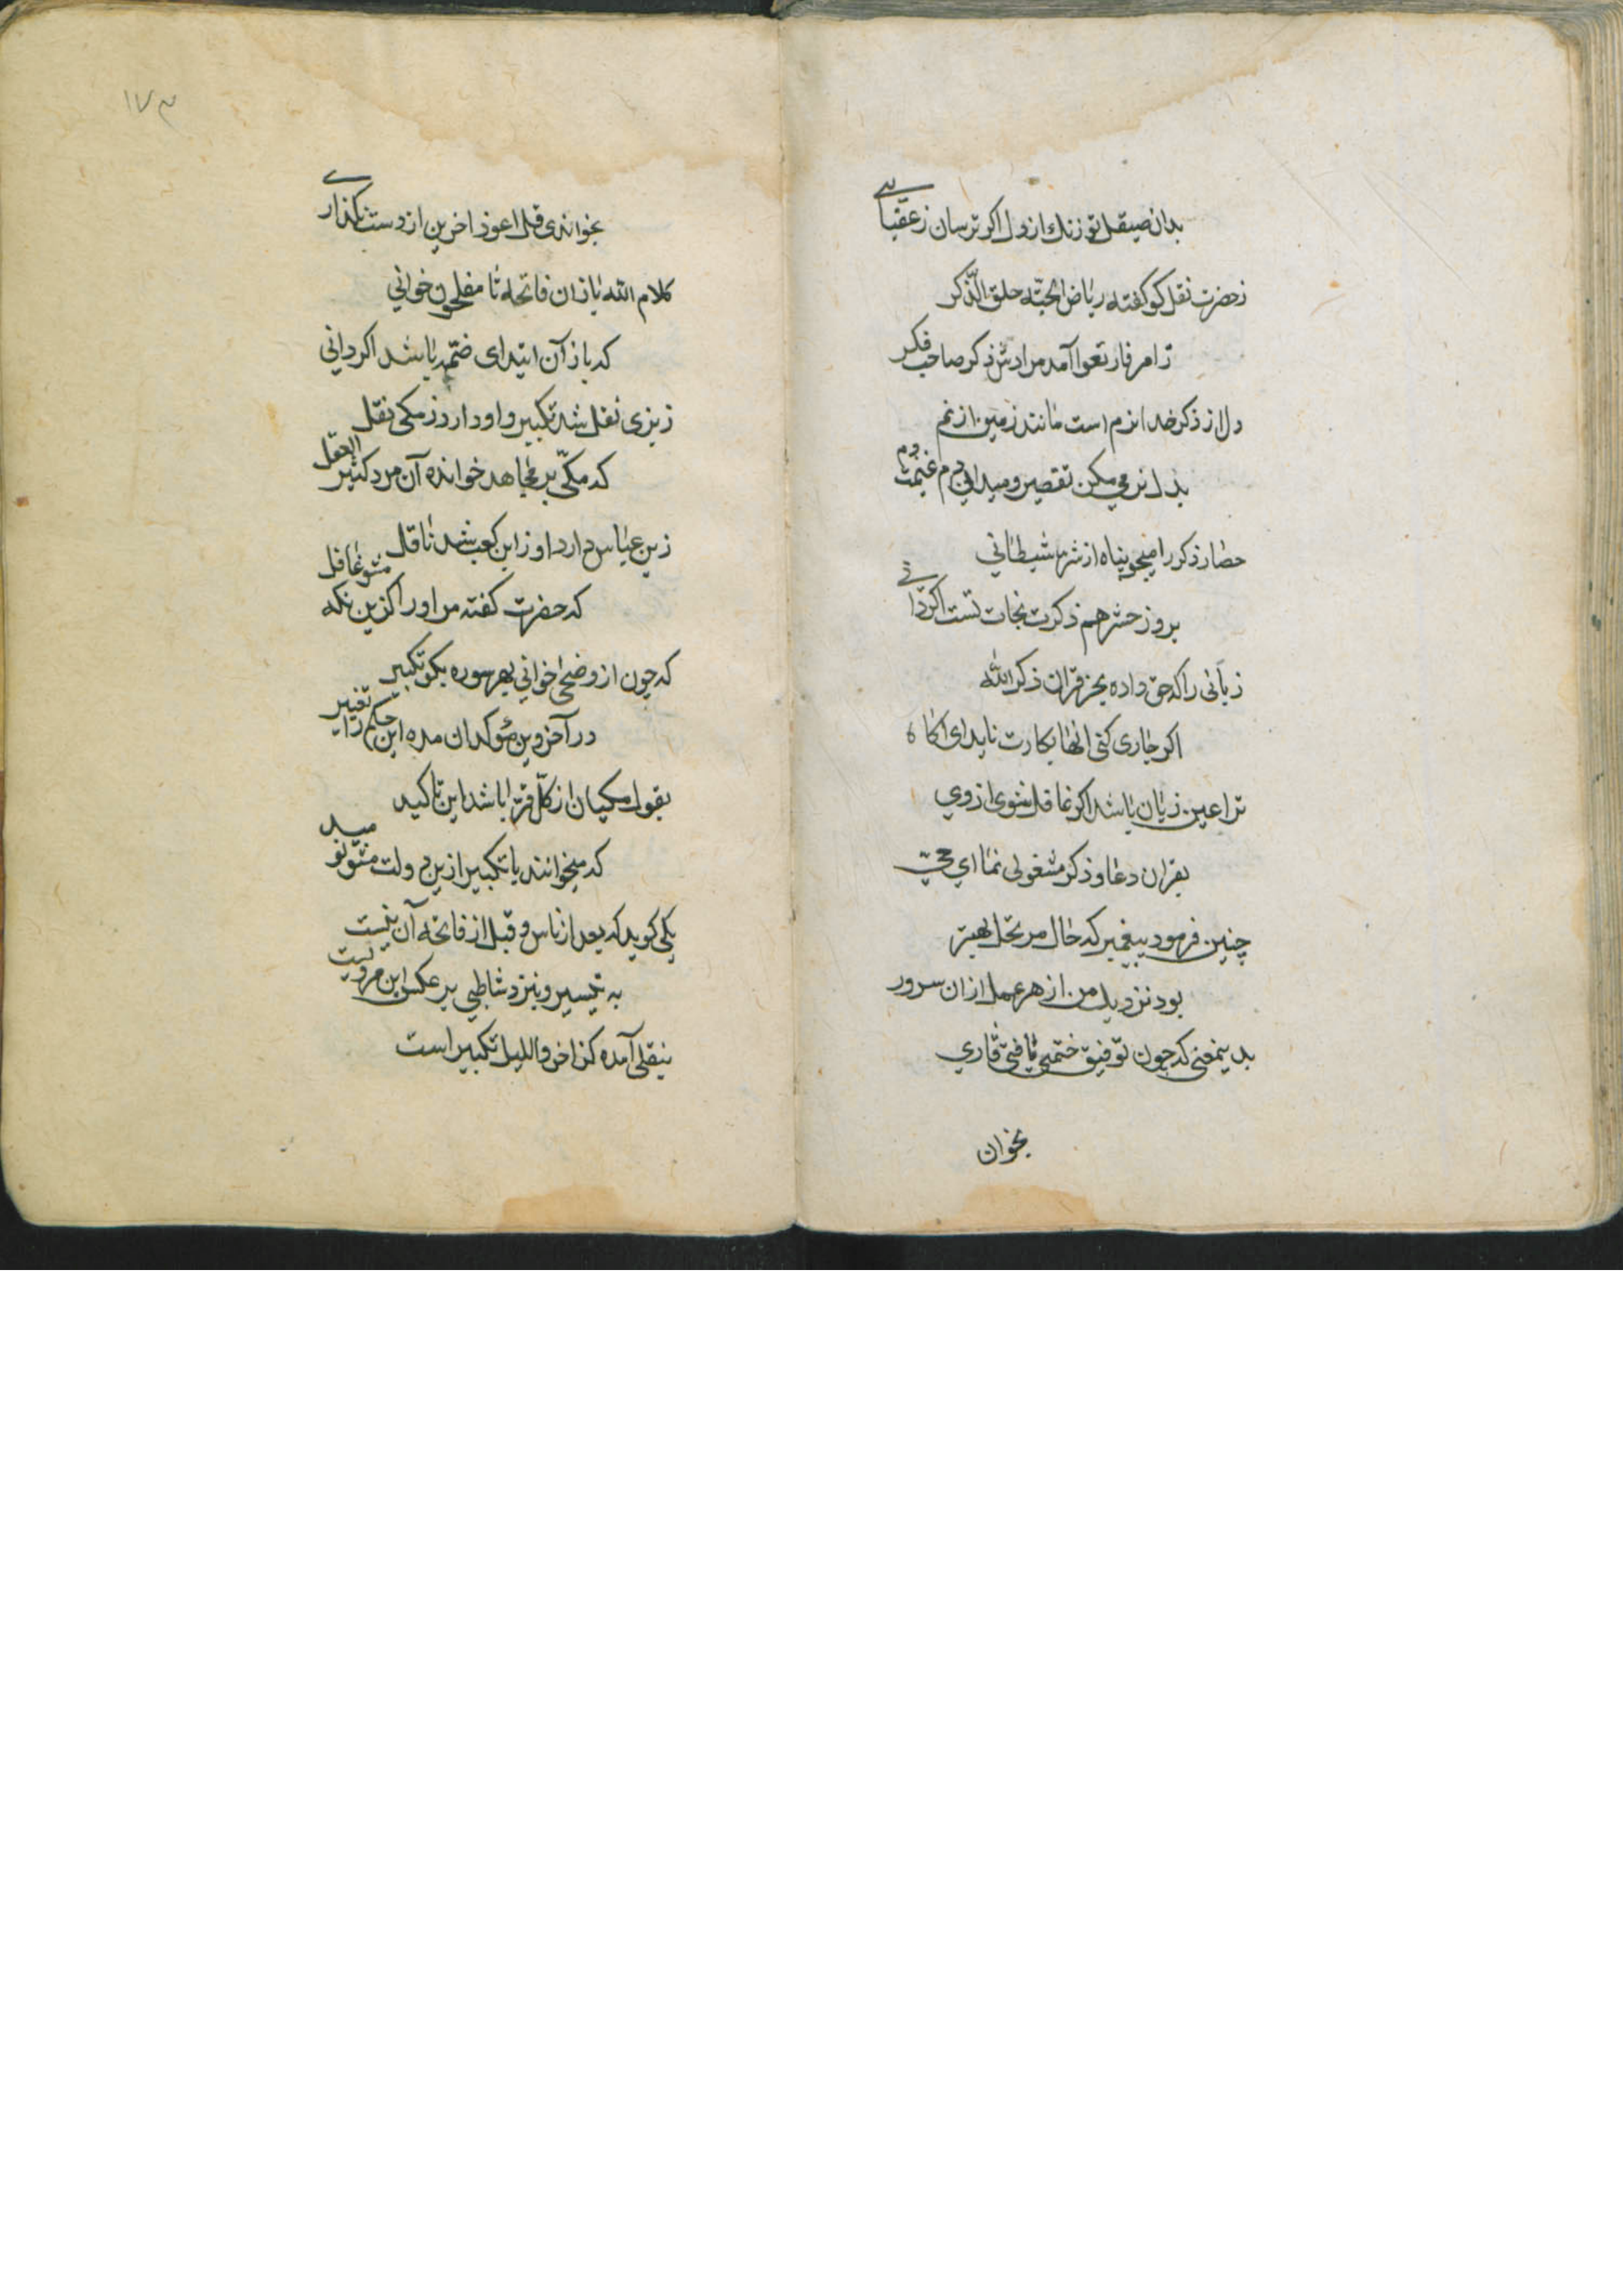 بدان صیقل تو زنك از دل اکر ترسان زعقبایی
زحضرت نقل کو کفته ریاض الجنّه حلق الذّکر
زامر فارتعوا آمد مرادش ذکر صاحب فکر
دل از ذکر خدا نرم است مانند زمین از نم
بدل نرمی مکن تقصیر و میدانی دم غنیمت دم
حصار ذکر را میجو پناه از شر شیطانی
بروز حشر هم ذکرت نجات تست اکر دانی
زبانی را که حق داده بجز قران ذکر الله
اکر جاری کنی انها بکارت ناید ای اکاه
ترا عین زیان باشد اکر غافل شوی از وی
بقران دعا و ذکر مشغولی نما ای حیّ
چنین فرمود پیغمبر که حال مرتحل بهتر
بود نزدیك من از هر عمل ازان سرور
بدینمعنی که چون توفیق ختمی یافتی قاری
بخوان
۱۷۳
بخواندی قل اعوذ اخرین از دست نکذاری
کلام الله یازان فاتحه تا مفلحون خوانی
که باز آن ابتدای ختمه باشد اکر دانی
زبزی نقل شد تکبیر و او دارد زمکی نقل
که مکّی بر مجاهد خوانده آن مرد کثیر العقل
زبن عباس دارد او زابن کعب شد ناقل
که حضرت کفته مر او را کزین نکته مشو غافل
که چون از وضحی خوانی بهر سوره بکو تکبیر
در آخر وین مؤکد ان مده این حکم را تغییر
بقول مکیان از کلّ قرّا باشد این تاکید
که میخوانند با تکبیر ازین دولت مشو نومید
یکی کوید که بعد از ناس و قبل از فاتحه آن نیست
به تیسیر و بنزد شاطبی بر عکس این مرویست
بنقلی آمده کز اخر واللیل تکبیر است